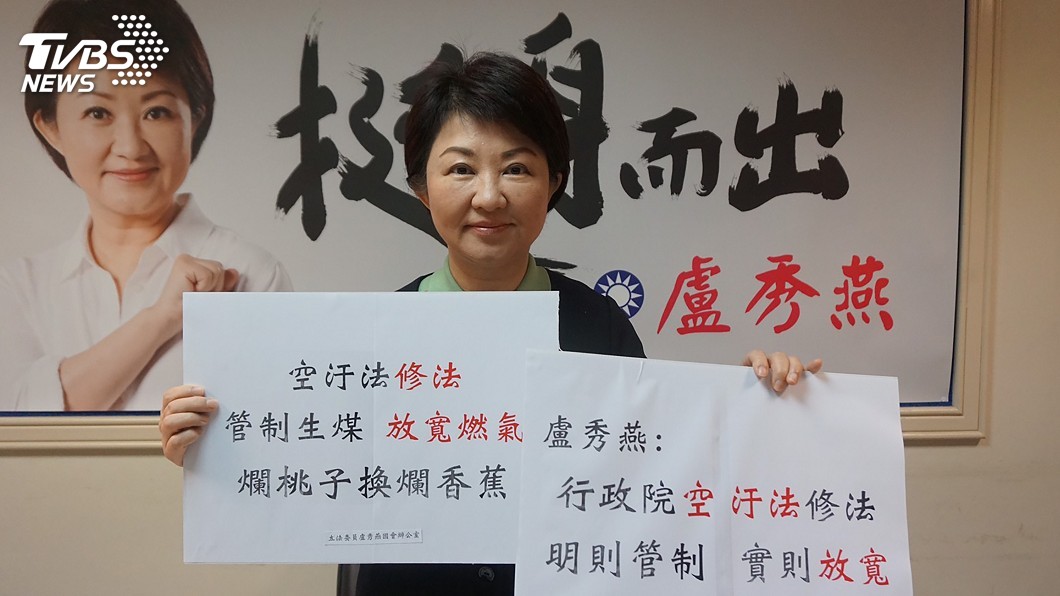 TVBS
NEWS
挺身而出
盧秀燕
空汙法修法
管制生煤 放寬燃氣
爛桃子換爛香蕉
立法委員盧秀燕國會辦公室
盧秀燕:
行政院空汙法修法
明則管制 實則放寬